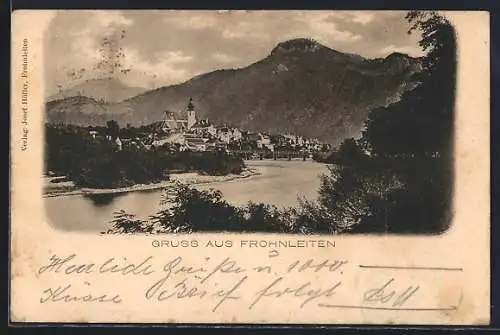 Verlag: Josef Hößler, Frohnleiten
GRUSS AUS FROHNLEITEN
Herzliche Grüße u 1000
Küsse Brief folgt